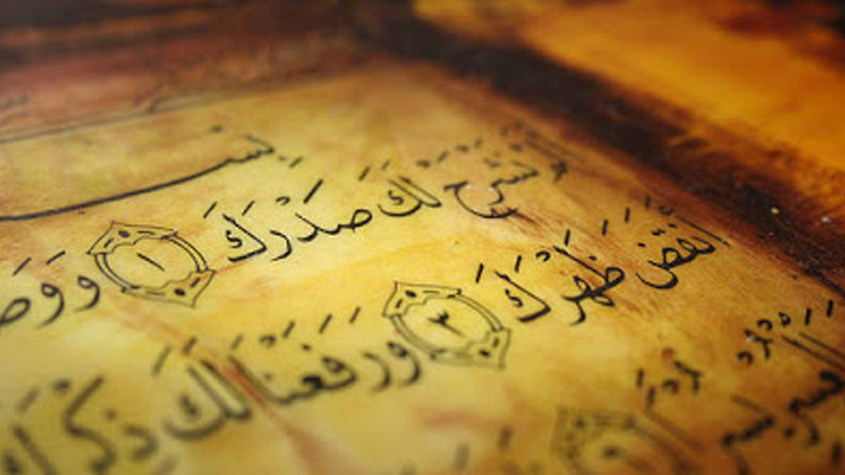 بس
نَشْرَحْ لَكَ صَدْرَكَ ١ وَوَضَ
أَنقَضَ ظَهْرَكَ ٣ وَرَفَعْنَا لَكَ ذِكْرَكَ
الْعُسْرِ يُسْرًا